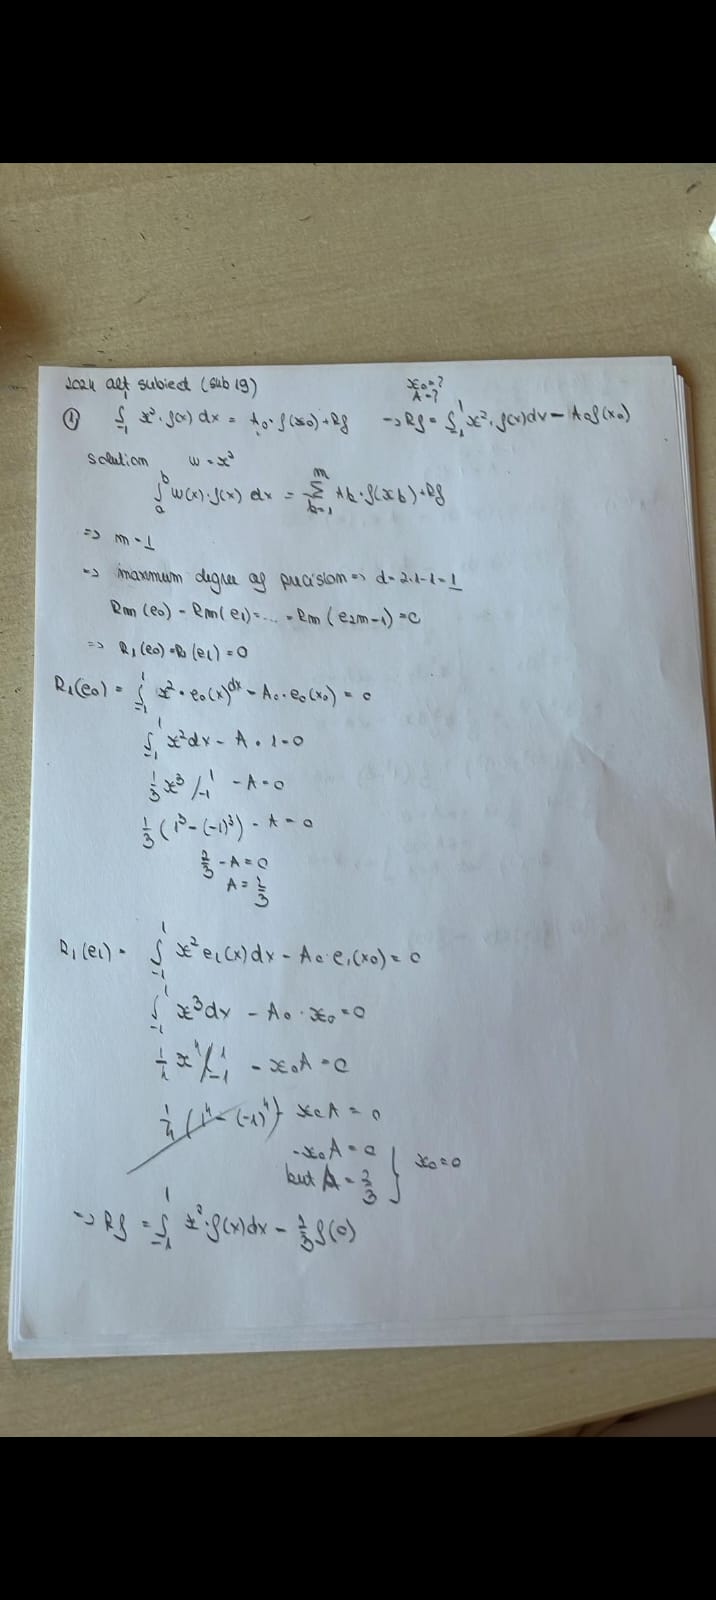 2024 alt subiect (sub 19)
x₀=?
A=?
① ∫₋₁¹ x²·f(x) dx = A₀·f(x₀)+Rf → Rf = ∫₋₁¹ x²·f(x)dx − A₀f(x₀)
solution w = x²
∫ₐᵇ w(x)·f(x) dx = Σ Ak·f(xk)+Rf
=> m=1
=> maximum degree of precision => d=2·1-1=1
Rm(e₀) = Rm(e₁) = ... = Rm(e₂m-1) = 0
=> R₁(e₀)=R₁(e₁)=0
R₁(e₀) = ∫₋₁¹ x²·e₀(x)dx − A₀·e₀(x₀) = 0
∫₋₁¹ x²dx − A·1=0
1/3 x³ /₋₁¹ − A=0
1/3 (1³−(−1)³) − A = 0
2/3 − A = 0
A = 2/3
R₁(e₁) = ∫₋₁¹ x²e₁(x)dx − A₀·e₁(x₀) = 0
∫₋₁¹ x³dx − A₀·x₀=0
x⁴/₋₁¹ − x₀A = 0
1/4 (1⁴ − (−1)⁴) − x₀A = 0
−x₀A = 0
but A = 2/3 } x₀=0
=> Rf = ∫₋₁¹ x²·f(x)dx − 2/3 f(0)